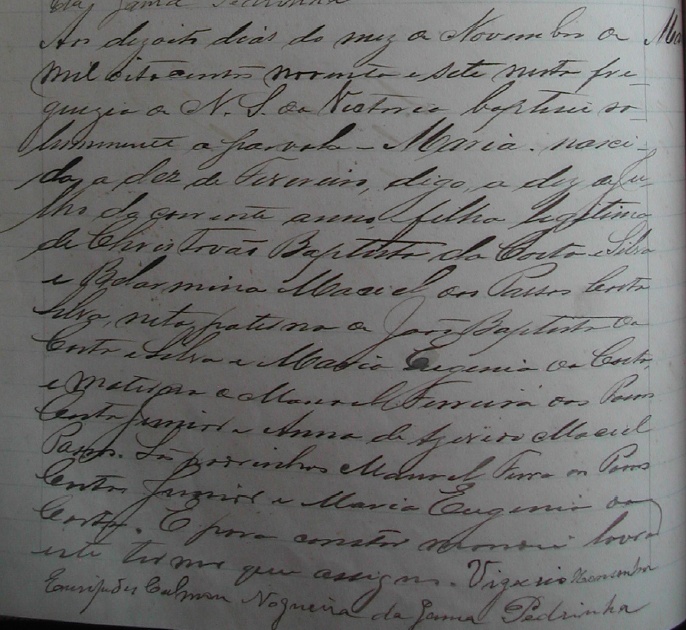 da Gama Pedrinha
Aos dezoito dias do mez de Novembro de Ma
mil oitocentos noventa e sete nesta fre-
guezia de N. S. da Victoria baptisei so-
lemnemente a parvola - Maria, nasci-
da, a dez de Fevereiro, digo, a dez de Ju-
lho do corrente anno, filha legitima
de Christovão Baptista da Costa e Silva
e Belarmina Maciel dos Passos Costa
Silva, neta paterna de João Baptista da
Costa e Silva e Maria Eugenia da Costa,
e materna de Manoel Ferreira dos Passos
Costa Junior e Anna de Azeredo Maciel
Passos. São padrinhos Manoel Ferra dos Passos
Costa Junior e Maria Eugenia da
Costa. E para constar mandei lavrar
este termo que assigno. Vigario
Euripedes Calmon Nogueira da Gama Pedrinha